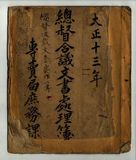 大正十三年
總督合議文書處理簿
專賣局庶務課